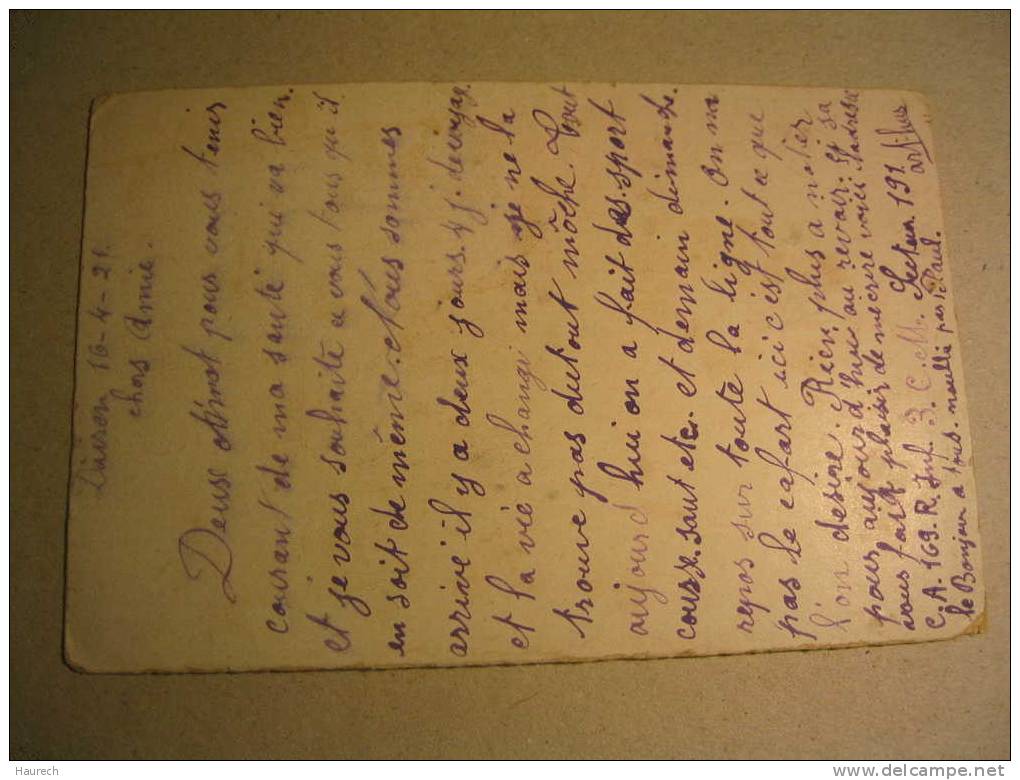 16-4-21
chers Amie.
Deux mot pour vous tenir
courant de ma santé qui va bien.
et je vous souhaite a vous tous qu'il
en soit de même. Nous sommes
arrivé il y a deux jours
et la vie a changé mais je ne la
trouve pas du tout môche. tout
aujourd hui on a fait des sport
course. saut etc. et demain dimanche.
repos sur toute la ligne. on na
pas le cafart ici c'est tout ce que
l'on desire. Rien plus a noter
pour aujourd'hui au revoir: Si sa
vous fait plaisir de mecrire voici ladresse
C.A. 169. R. Inf. 3. C. M. Secteur 191
le Bonjour a tous. Paul.
Haurech
www.delcampe.net